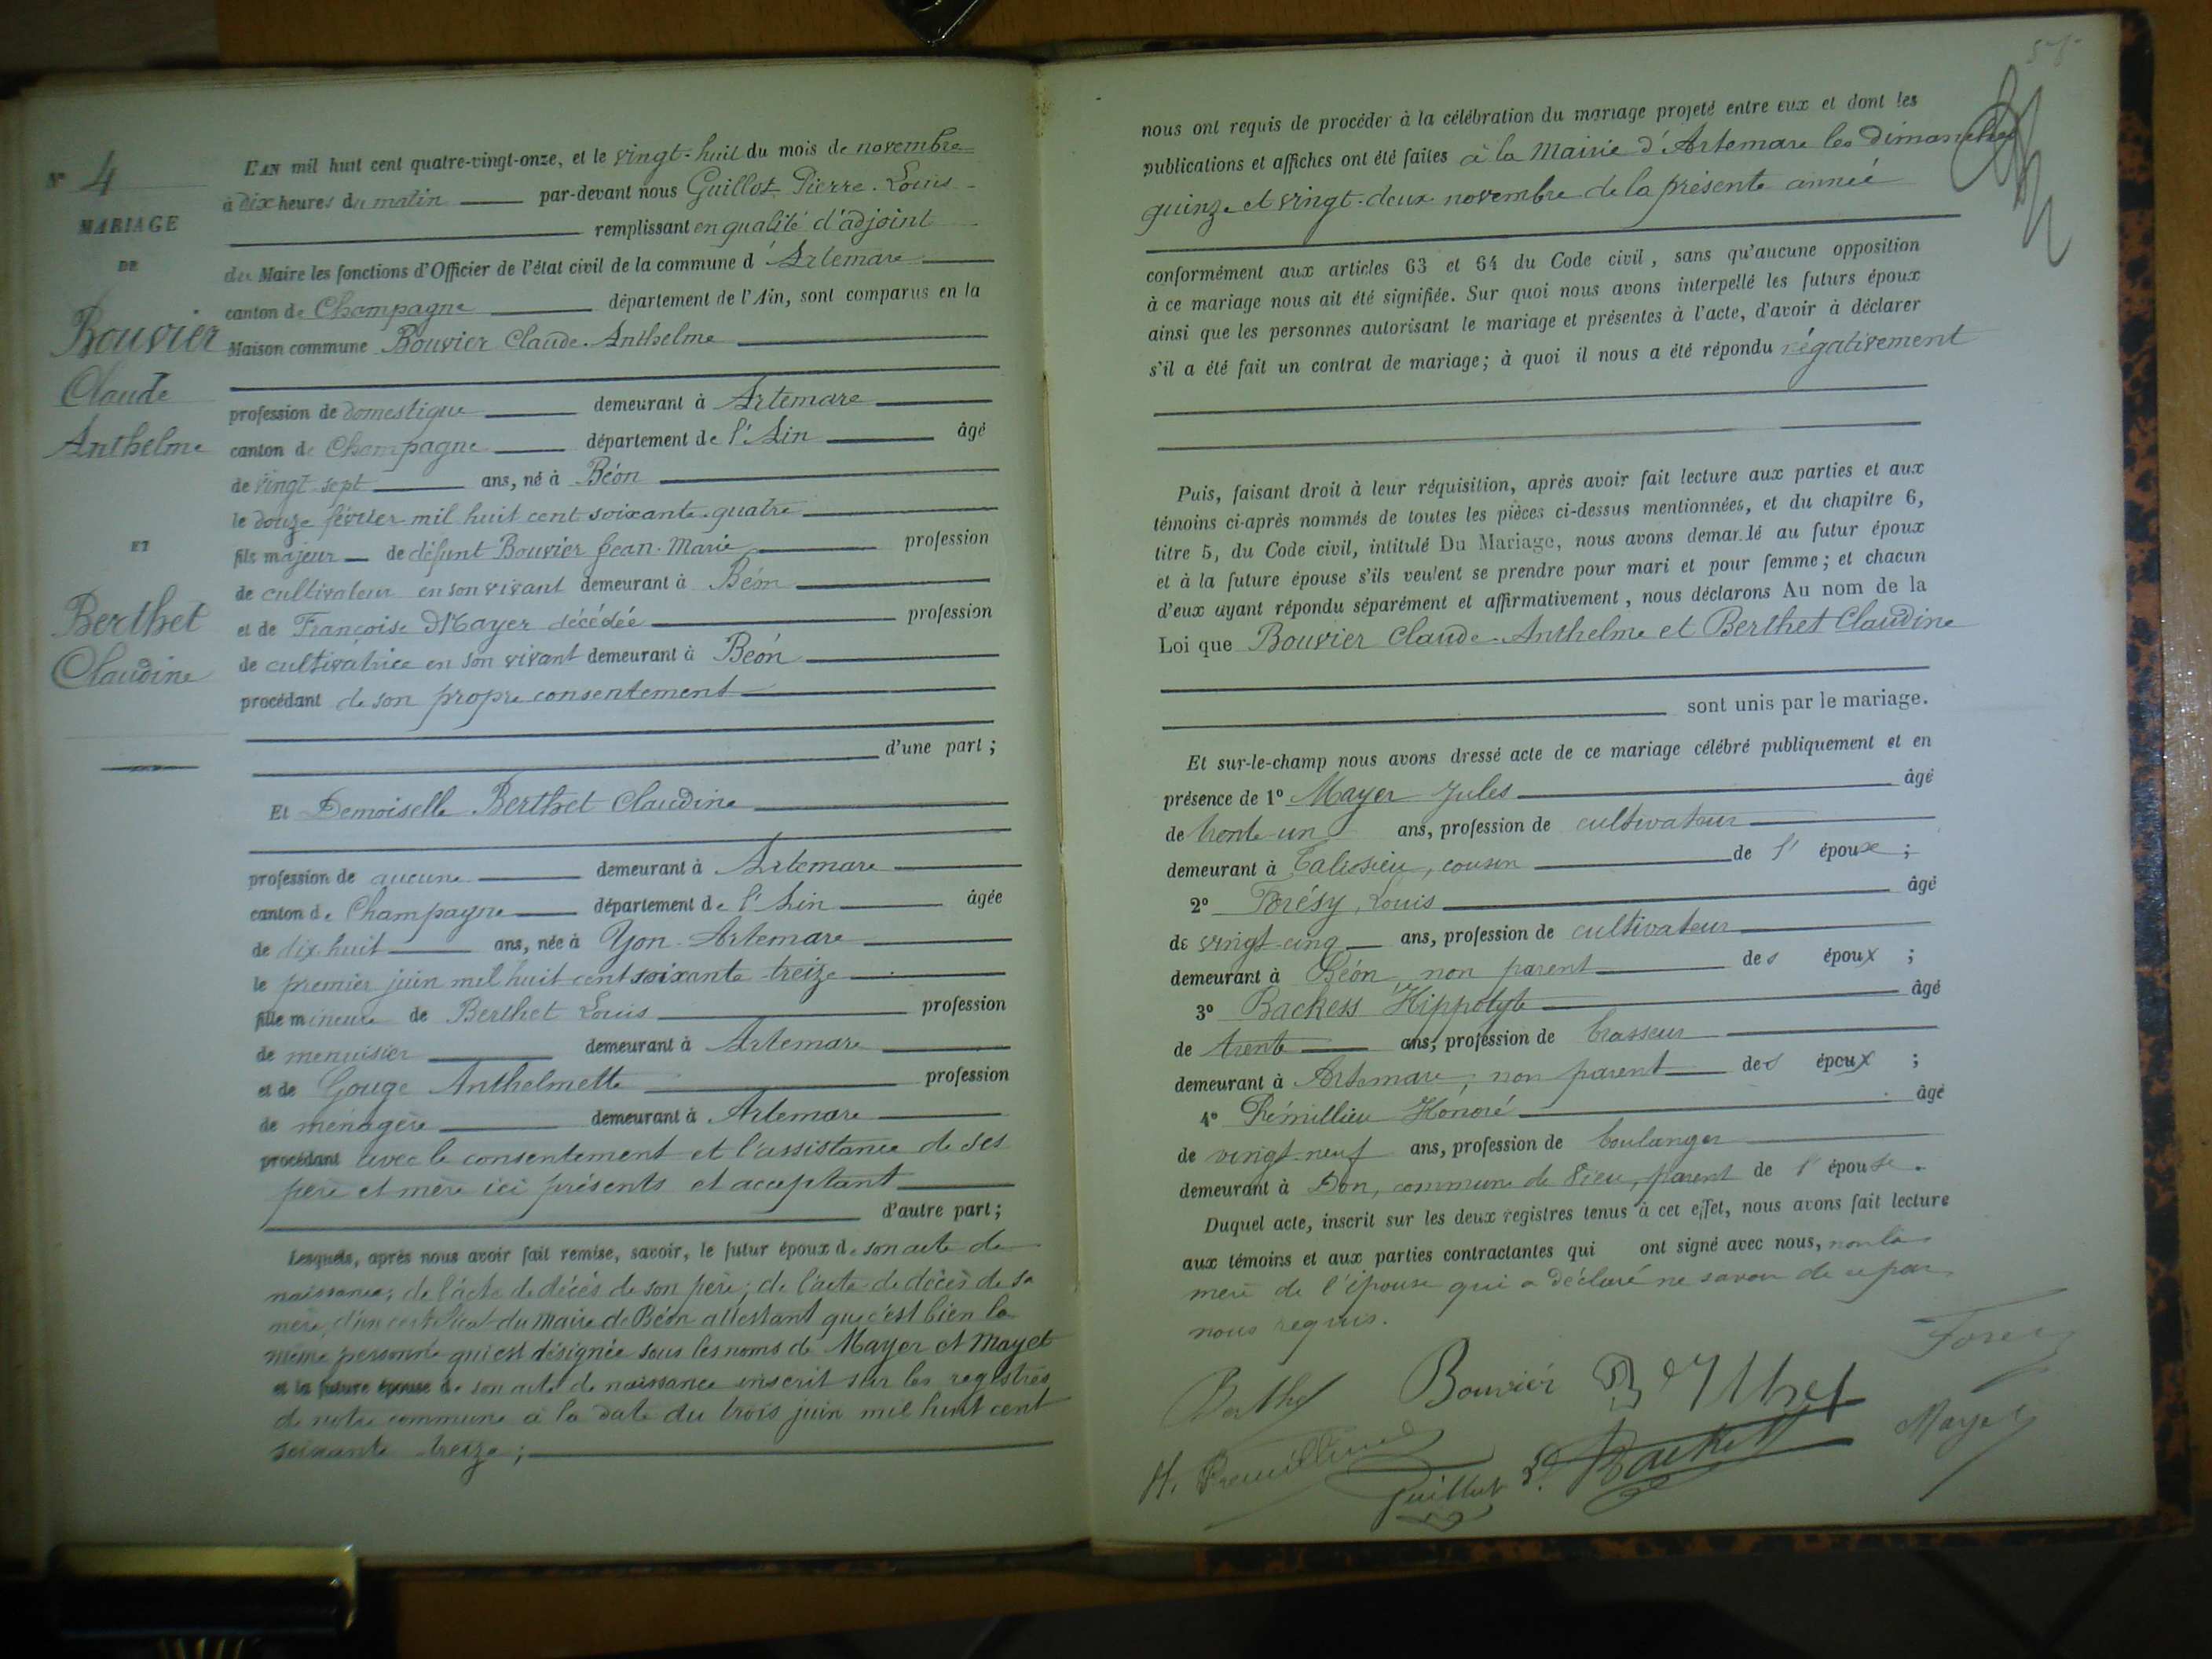 N° 4
MARIAGE
DE
Bouvier
Claude
Anthelme
ET
Berthet
Claudine
L'AN mil huit cent quatre-vingt-onze, et le vingt-huit du mois de novembre
à dix heures du matin par-devant nous Guillot Pierre-Louis
remplissant en qualité d'adjoint
du Maire les fonctions d'Officier de l'état civil de la commune d'Artemare
canton de Champagne département de l'Ain, sont comparus en la
Maison commune Bouvier Claude-Anthelme
profession de domestique demeurant à Artemare
canton de Champagne département de l'Ain âgé
de vingt-sept ans, né à Béon
le douze février mil huit cent soixante-quatre
fils majeur de défunt Bouvier Jean-Marie profession
de cultivateur en son vivant demeurant à Béon
et de Françoise Mayer décédée profession
de cultivatrice en son vivant demeurant à Béon
procédant de son propre consentement
d'une part ;
Et Demoiselle Berthet Claudine
profession de aucune demeurant à Artemare
canton de Champagne département de l'Ain âgée
de dix-huit ans, née à Yon-Artemare
le premier juin mil huit cent soixante-treize
fille mineure de Berthet Louis profession
de menuisier demeurant à Artemare
et de Gouge Anthelmette profession
de ménagère demeurant à Artemare
procédant avec le consentement et l'assistance de ses
père et mère ici présents et acceptant
d'autre part ;
Lesquels, après nous avoir fait remise, savoir, le futur époux de son acte de
naissance ; de l'acte de décès de son père ; de l'acte de décès de sa
mère, d'un certificat du Maire de Béon attestant que c'est bien la
même personne qui est désignée sous les noms de Mayer et Mayet
et la future épouse de son acte de naissance inscrit sur les registres
de notre commune à la date du trois juin mil huit cent
soixante-treize ;
nous ont requis de procéder à la célébration du mariage projeté entre eux et dont les
publications et affiches ont été faites à la Mairie d'Artemare les dimanches
quinze et vingt-deux novembre de la présente année
conformément aux articles 63 et 64 du Code civil, sans qu'aucune opposition
à ce mariage nous ait été signifiée. Sur quoi nous avons interpellé les futurs époux
ainsi que les personnes autorisant le mariage et présentes à l'acte, d'avoir à déclarer
s'il a été fait un contrat de mariage ; à quoi il nous a été répondu négativement
Puis, faisant droit à leur réquisition, après avoir fait lecture aux parties et aux
témoins ci-après nommés de toutes les pièces ci-dessus mentionnées, et du chapitre 6,
titre 5, du Code civil, intitulé Du Mariage, nous avons demandé au futur époux
et à la future épouse s'ils veulent se prendre pour mari et pour femme ; et chacun
d'eux ayant répondu séparément et affirmativement, nous déclarons Au nom de la
Loi que Bouvier Claude-Anthelme et Berthet Claudine
sont unis par le mariage.
Et sur-le-champ nous avons dressé acte de ce mariage célébré publiquement et en
présence de 1° Mayer Jules âgé
de trente-un ans, profession de cultivateur
demeurant à Talissieu, cousin de l'épouse ;
2° Louis âgé
de vingt-cinq ans, profession de cultivateur
demeurant à Béon, non parent des époux ;
3° Backess Hippolyte âgé
de trente ans, profession de brasseur
demeurant à Artemare, non parent des époux ;
4° Honoré âgé
de vingt-neuf ans, profession de boulanger
demeurant à Don, commune de Vieu, parent de l'épouse.
Duquel acte, inscrit sur les deux registres tenus à cet effet, nous avons fait lecture
aux témoins et aux parties contractantes qui ont signé avec nous, non la
mère de l'épouse qui a déclaré ne savoir de ce par
nous requis.
Bouvier Berthet
Guillot Mayer